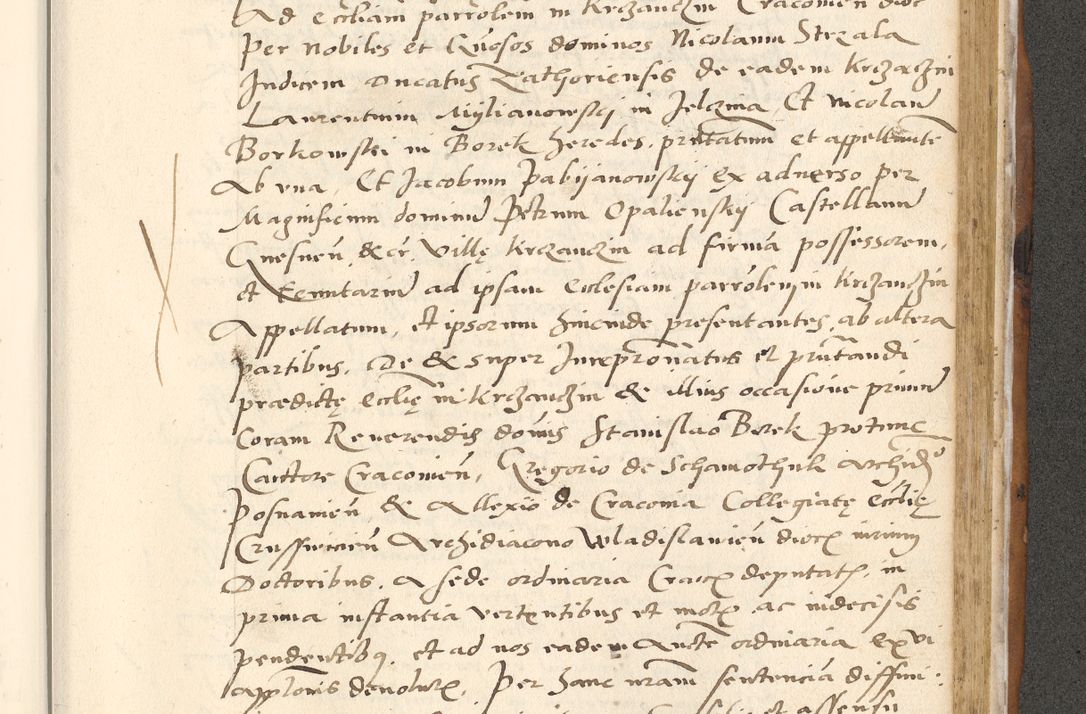 Ad Eccliam parrolem in Krczanczin Cracouien dioc
Per Nobiles et Gnosos dominos Nicolaum Strzala
Iudicem Ducatus Zathoriensis de eadem Krczaczin
Laurentium Myljanowskij in Jelczina Et Nicolaum
Borkowski in Borek heredes, pntatum et appellante
Ab vna, Et Jacobum Pabijanowskij ex aduerso per
Magnificum dominum Petrum Opalienskij Castellanum
Gnesnen, &cr. Villę Krczanczin ad firma possessorem,
et tenutarium ad ipsam Ecclesiam parrolem in Krczanczin
Appellatum, et ipsorum hincinde presentantes, ab altera
partibus, De & super Jurepronatus et pntandi
prædictę Ecclię in Krczanczin & illius occasione primum
Coram Reuerendis domis Stanislao Borek protunc
Cantore Cracouien, Gregorio de Schamothuli Archid
Posnanien, & Allexio de Cracouia Collegiatę Ecclię
Crusswicien Archidiacono Wladislauien dioc iurium
Doctoribus, a sede ordinaria Cracouien deputat, in
prima instantia vertentibus et mot ac indecisis
pendentibq, et ad nos eadem Aucte ordinaria ex vi
applonis deuolut, Per hanc nram sentencia diffini:
et assensu